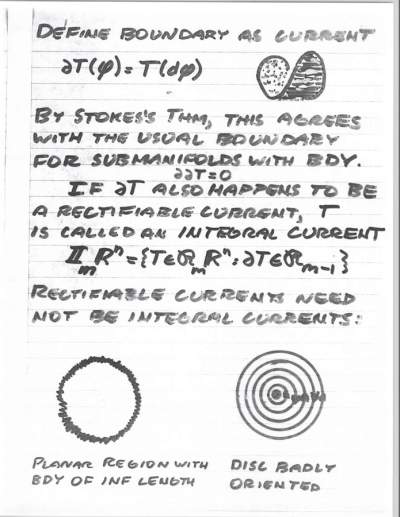 DEFINE BOUNDARY AS CURRENT
∂T(φ) = T(dφ)
BY STOKES'S THM, THIS AGREES
WITH THE USUAL BOUNDARY
FOR SUBMANIFOLDS WITH BDY.
∂∂T=0
IF ∂T ALSO HAPPENS TO BE
A RECTIFIABLE CURRENT, T
IS CALLED AN INTEGRAL CURRENT
𝕀ₘ ℝⁿ = {T ∈ ℛₘ ℝⁿ : ∂T ∈ ℛₘ₋₁}
RECTIFIABLE CURRENTS NEED
NOT BE INTEGRAL CURRENTS:
PLANAR REGION WITH
BDY OF INF LENGTH
DISC BADLY
ORIENTED